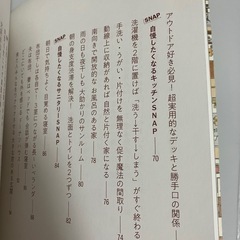 アウトドア好き必見! 超実用的なデッキと勝手口の関係
SNAP 自慢したくなるキッチンSNAP 70
洗濯機を2階に置けば「洗う↓干す↓しまう」がすぐ終わる
手洗い・うがい・片付けを無理なく促す魔法の間取り 74
動線上に収納があれば自然と片付く家になる 76
南向きで開放的なお風呂のある家 78
雨の日も夜干しも大助かりのサンルーム 80
朝の身支度渋滞を解決! 洗面とトイレを2つずつ 82
SNAP 自慢したくなるサニタリーSNAP 84
朝日で気持ちよく目覚める寝室 86